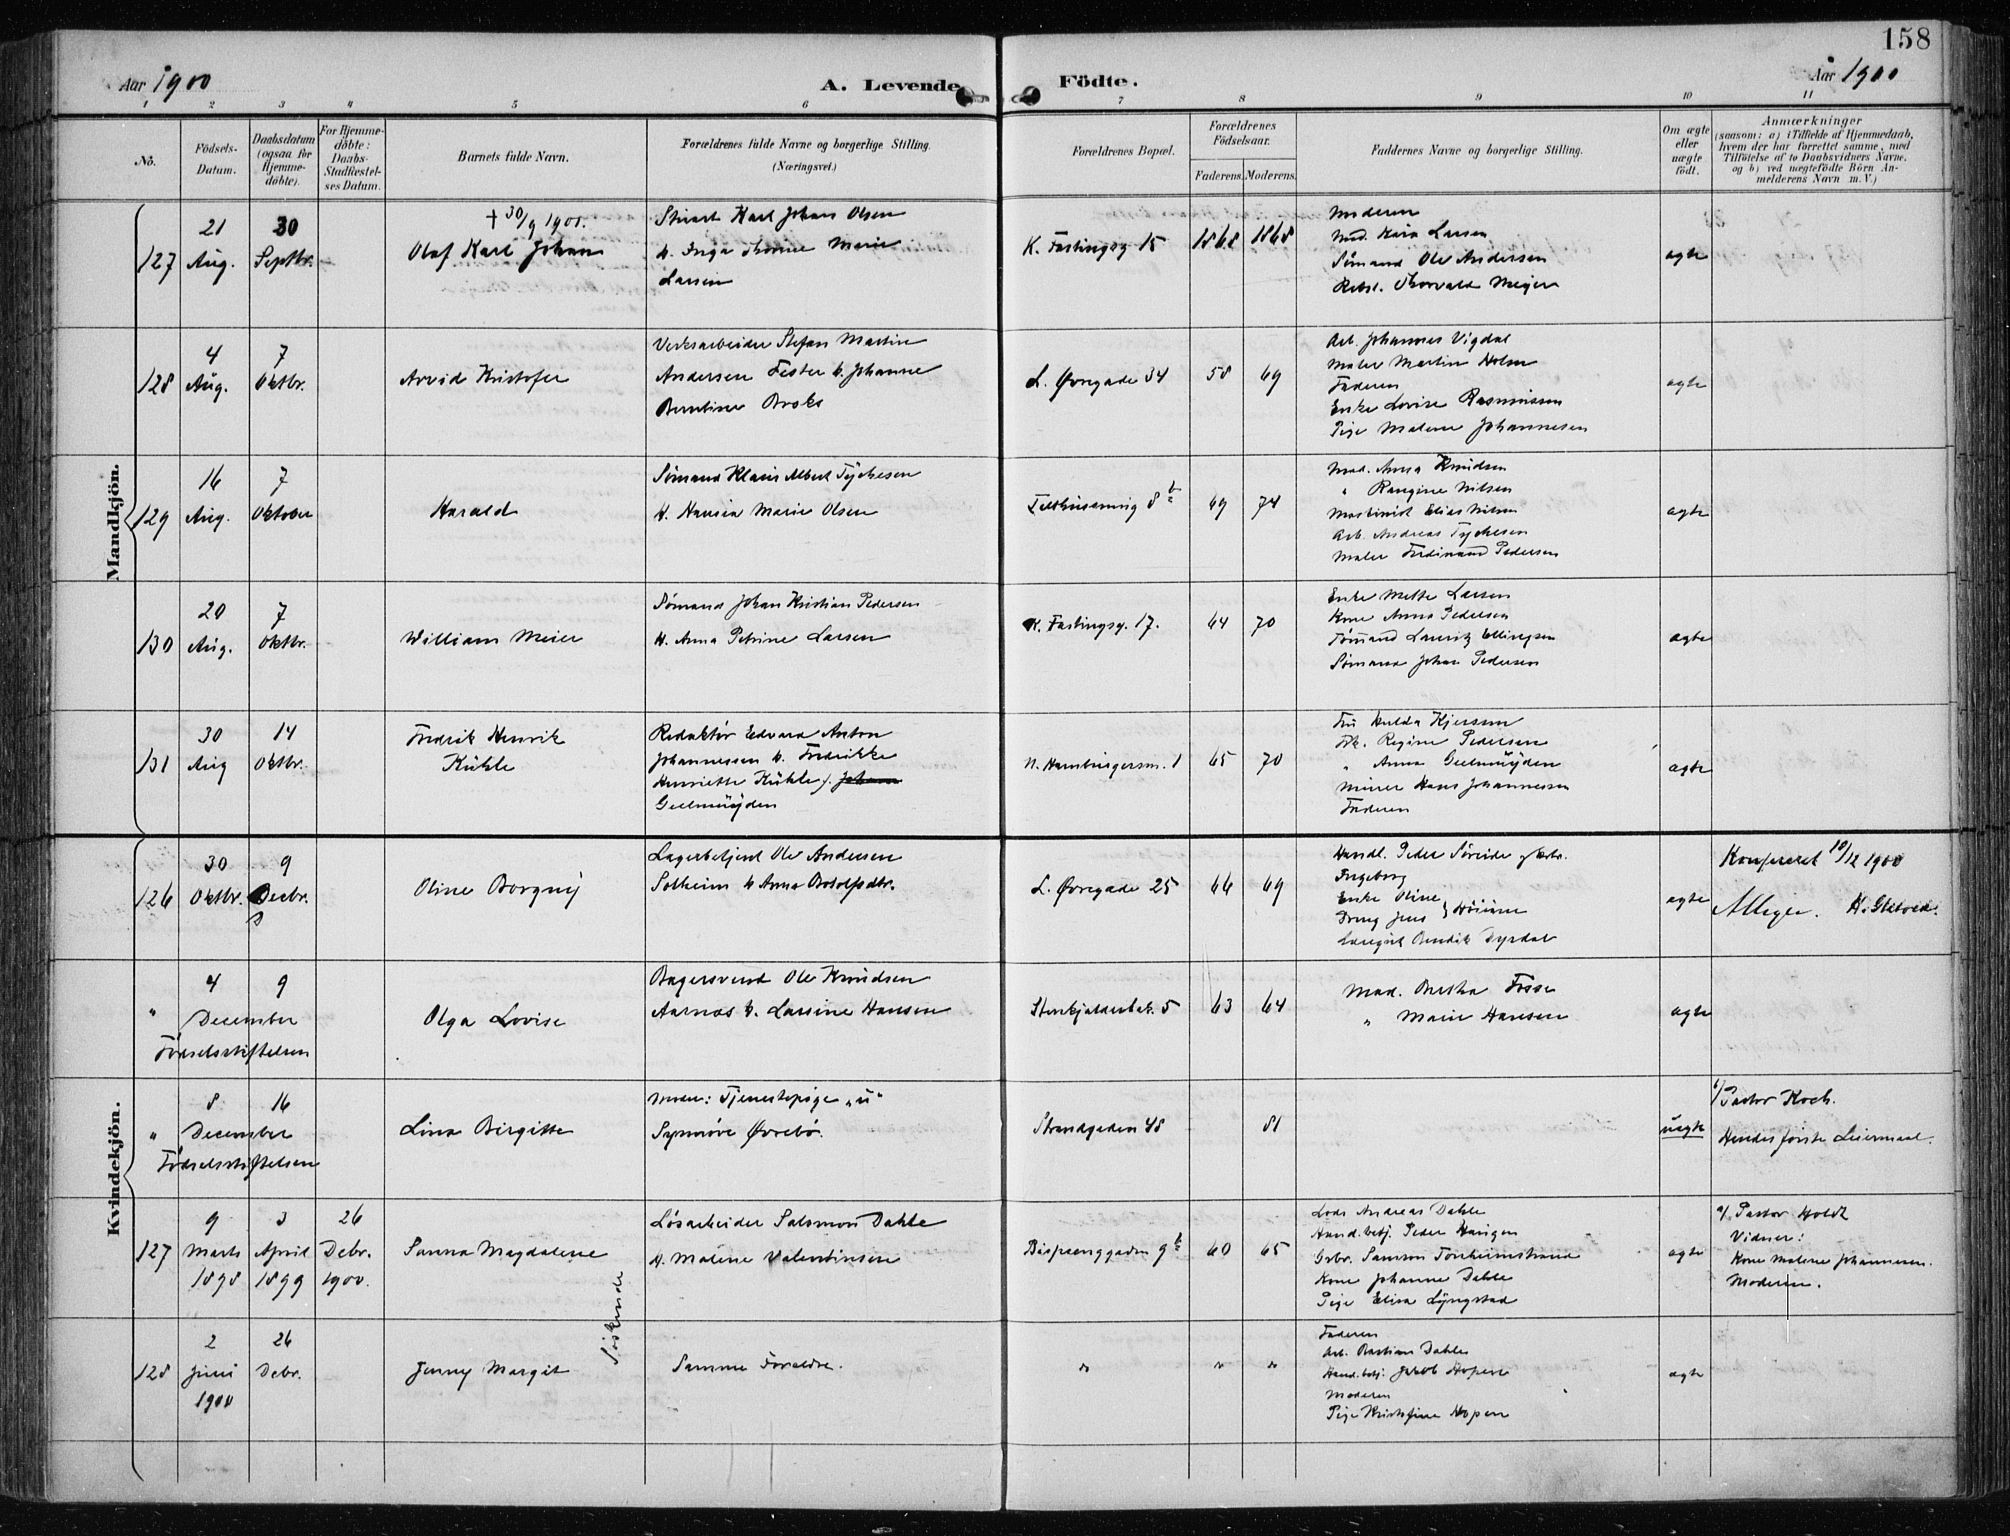 158
Aar 1900
A. Levende Födte.
Aar 1900
1 2 3 4 5 6 7 8 9 10 11
No.
Födsels-Datum.
Daabsdatum (ogsaa for Hjemme-döbte).
For Hjemme-döbte: Daabs-Stadfæstel-ses Datum.
Barnets fulde Navn.
Forældrenes fulde Navne og borgerlige Stilling.
(Næringsvei.)
Forældrenes Bopæl.
Forældrenes Födselsaar.
Faderens. Moderens.
Faddernes Navne og borgerlige Stilling.
Om ægte eller uægte födt.
Anmærkninger
(saasom: a) i Tilfælde af Hjemmedaab,
hvem der har forrettet samme, med
Tilföielse af to Daabsvidners Navne,
og b) ved uægtefödte Börn An-
melderens Navn m. V.)
Mandkjön.
127
21 Aug.
30 Septbr.
+ 30/9 1901.
Olaf Karl Johan
Stuert Karl Johan Olsen
h. Inga Thomine Marie
Larsen
K. Fastingsg 15
1868 1868
Moderen
Mad. Kaia Larsen
Sömand Ole Andersen
Rebsl. Thorvald Meyer
ægte
128
4 Aug.
7 Oktbr.
Arvid Kristofer
Verksarbeider Stefan Martin
Andersen Fester h. Johanne
Berntine Broks
L. Øvregade 34
58 69
Arb. Johannes Vigdal
Maler Martin Holm
Faderen
Enke Lovise Rasmussen
Pige Malene Johannesen
ægte
129
16 Aug.
7 Oktober
Harald
Sømand Klaus Albert Tychesen
h. Hansia Marie Olsen
69 74
Mad. Anna Knudsen
" Rangine Nilsen
Maskinist Elias Nilsen
Arb. Andreas Tychesen
Maler Ferdinand Pedersen
ægte
130
20 Aug.
7 Oktbr.
William Meier
Sömand Johan Kristian Pedersen
h. Anna Petrine Larsen
K. Fastingsg. 17.
64 70
Enke Mette Larsen
Kone Anna Pedersen
Tømmand Lauritz Ellingsen
Sømand Johan Pedersen
ægte
131
30 Aug
14 Oktbr.
Fredrik Henrik
Kühle
Redaktør Edvard Anton
Johannessen h. Fredrikke
Henriette Kühle f.
Geelmuyden
N. Hamburgersm. 1
65 70
Fru Hulda Kjerssem
Frk. Regine Pedersen
" Anna Geelmuyden
Murer Hans Johannessen
Faderen
ægte
Kvindekjön.
126
30 Oktbr.
9 Decbr.
Oline Borgny
Lagerbetjent Ole Andersen
Solheim h Anna Botolfsdtr.
L. Øvregade 25
66 69
Handl. Peder Søreide
Ingeborg
Enke Oline
Dreng Jens
Læregut Bendik Dyrdal
ægte
Konfereret 18/12 1900
"
4 9
December
Födselsstiftelsen
Olga Lovise
Bagersvend Ole Knudsen
Aarnæs h. Larsine Hansen
Stenkjælderbak. 5
63 64
Mad. Bertha Fosse
" Marie Hansen
ægte
"
8 16
December
Födselsstiftelsen
Lina Birgitte
Moder: Tjenestepige "u"
Synnøve Øvrebø.
Strandgaden 48
81
uægte
b/ Pastor Koch.
Hendes første Leiermaal.
127
9 Marts 1898
3 April 1899
26 Debr. 1900.
Sanna Magdalene
Søskende
Løsarbeider Salomon Dahle
h. Malene Valentinsen
Bispeenggaden 9 b
60 65
Lods Andreas Dahle
Hand.betj. Peder Haugen
Grbr. Samson Tonheimstrand
Kone Johanne Dahle
Pige Elisa Lyngstad
ægte
a/ Pastor Holdt
Vidner:
Kone Malene Johannesen.
Moderen.
128
2 Juni 1900
26 Debr.
Jenny Margit
Samme Foreldre.
" " "
Faderen
Arb. Bastian Dahle
Hand.betj. Jakob Hopen
Moderen
Pige Kristofine Hopen
ægte